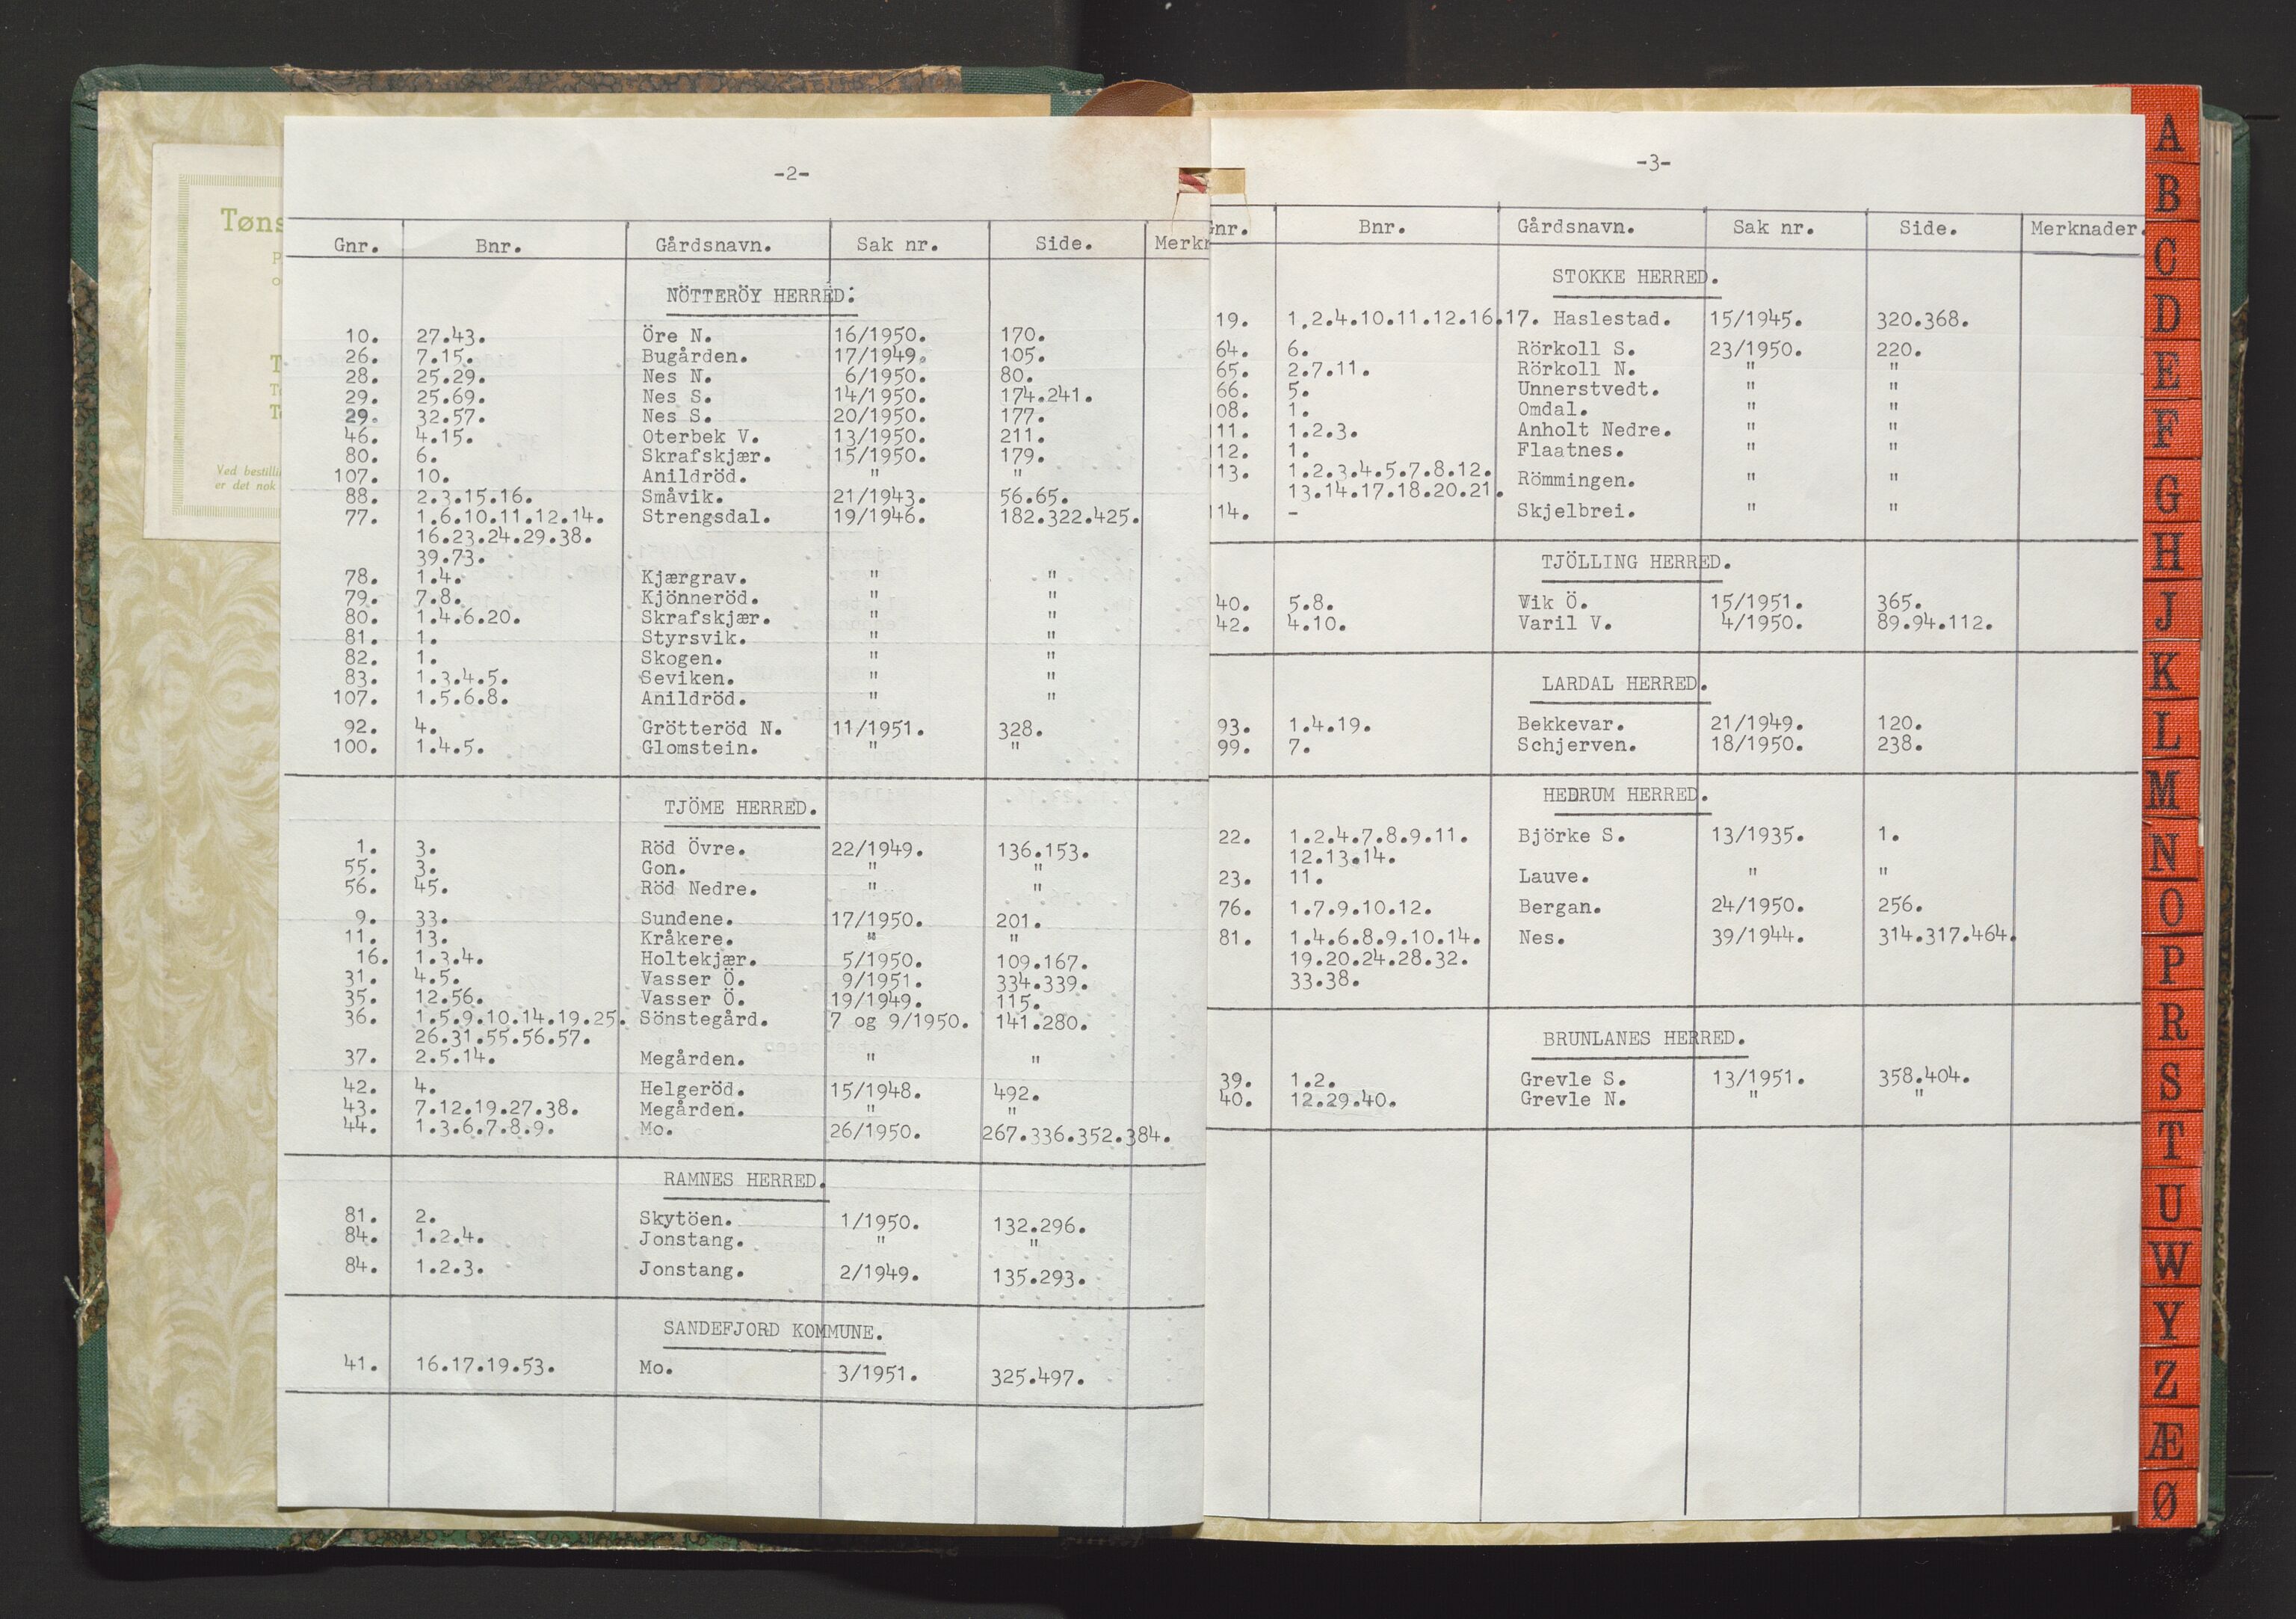 Tøns
Ved bestilli
er det nok
-2-
Gnr. Bnr. Gårdsnavn. Sak nr. Side. Merkn
NÖTTERÖY HERRED:
10. 27.43. Öre N. 16/1950. 170.
26. 7.15. Bugården. 17/1949. 105.
28. 25.29. Nes N. 6/1950. 80.
29. 25.69. Nes S. 14/1950. 174.241.
29. 32.57. Nes S. 20/1950. 177.
46. 4.15. Oterbek V. 13/1950. 211.
80. 6. Skrafskjær. 15/1950. 179.
107. 10. Anildröd. " "
88. 2.3.15.16. Småvik. 21/1943. 56.65.
77. 1.6.10.11.12.14. Strengsdal. 19/1946. 182.322.425.
16.23.24.29.38.
39.73.
78. 1.4. Kjærgrav. " "
79. 7.8. Kjönneröd. " "
80. 1.4.6.20. Skrafskjær. " "
81. 1. Styrsvik. " "
82. 1. Skogen. " "
83. 1.3.4.5. Seviken. " "
107. 1.5.6.8. Anildröd. " "
92. 4. Grötteröd N. 11/1951. 328.
100. 1.4.5. Glomstein. " "
TJÖME HERRED.
1. 3. Röd Övre. 22/1949. 136.153.
55. 3. Gon. " "
56. 45. Röd Nedre. " "
9. 33. Sundene. 17/1950. 201.
11. 13. Kråkere. " "
16. 1.3.4. Holtekjær. 5/1950. 109.167.
31. 4.5. Vasser Ö. 9/1951. 334.339.
35. 12.56. Vasser Ö. 19/1949. 115.
36. 1.5.9.10.14.19.25. Sönstegård. 7 og 9/1950. 141.280.
26.31.55.56.57.
37. 2.5.14. Megården. " "
42. 4. Helgeröd. 15/1948. 492.
43. 7.12.19.27.38. Megården. " "
44. 1.3.6.7.8.9. Mo. 26/1950. 267.336.352.384.
RAMNES HERRED.
81. 2. Skytöen. 1/1950. 132.296.
84. 1.2.4. Jonstang. " "
84. 1.2.3. Jonstang. 2/1949. 135.293.
SANDEFJORD KOMMUNE.
41. 16.17.19.53. Mo. 3/1951. 325.497.
-3-
Gnr. Bnr. Gårdsnavn. Sak nr. Side. Merknader.
STOKKE HERRED.
19. 1.2.4.10.11.12.16.17. Haslestad. 15/1945. 320.368.
64. 6. Rörkoll S. 23/1950. 220.
65. 2.7.11. Rörkoll N. " "
66. 5. Unnerstvedt. " "
108. 1. Omdal. " "
111. 1.2.3. Anholt Nedre. " "
112. 1. Flaatnes. " "
113. 1.2.3.4.5.7.8.12. Römmingen. " "
13.14.17.18.20.21.
114. - Skjelbrei. " "
TJÖLLING HERRED.
40. 5.8. Vik Ö. 15/1951. 365.
42. 4.10. Varil V. 4/1950. 89.94.112.
LARDAL HERRED.
93. 1.4.19. Bekkevar. 21/1949. 120.
99. 7. Schjerven. 18/1950. 238.
HEDRUM HERRED.
22. 1.2.4.7.8.9.11. Björke S. 13/1935. 1.
12.13.14.
23. 11. Lauve. " "
76. 1.7.9.10.12. Bergan. 24/1950. 256.
81. 1.4.6.8.9.10.14. Nes. 39/1944. 314.317.464.
19.20.24.28.32.
33.38.
BRUNLANES HERRED.
39. 1.2. Grevle S. 13/1951. 358.404.
40. 12.29.40. Grevle N. " "
A
B
C
D
E
F
G
H
J
K
L
M
N
O
P
R
S
T
U
W
Y
Z
Æ
Ø